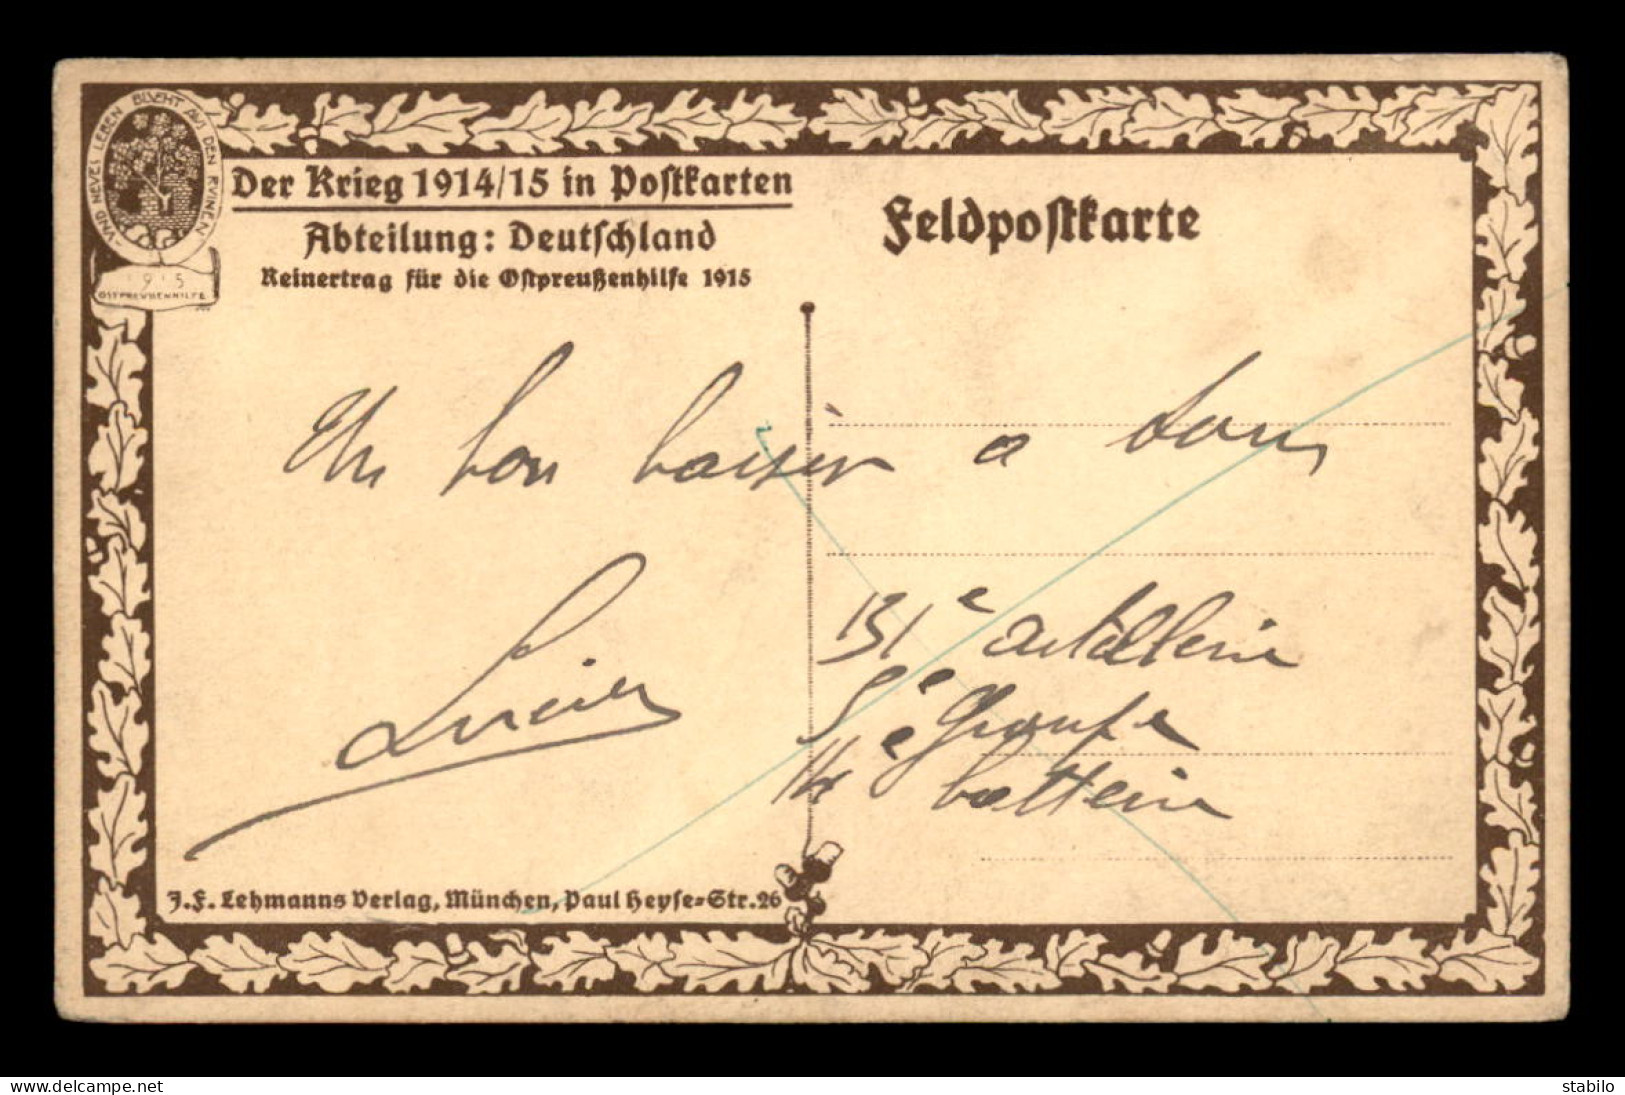 VND NEVES LEBEN BLVEHT AUS DEN RVINEN
1915
OSTPREVSSENHILFE
Der Krieg 1914/15 in Postkarten
Abteilung: Deutschland
Reinertrag für die Ostpreußenhilfe 1915
Feldpostkarte
Un bon baiser a tous
Lucien
131e artillerie
5e Groupe
14e batterie
J. F. Lehmanns Verlag, München, Paul Heyse-Str. 26
delcampe.net
stabilo